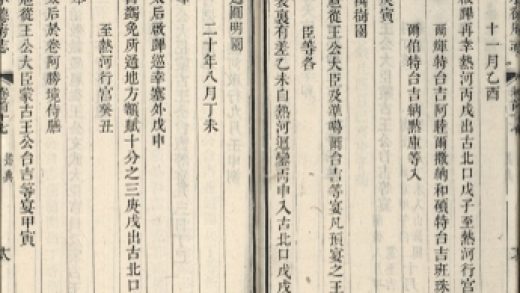 十一月乙酉
啟蹕再幸熱河丙戌出古北口戊子至熱河行宮
爾輝特台吉阿睦爾撒納和碩特台吉班珠
爾伯特台吉納黙庫等入
寅
樹園
扈從王公大臣及準噶爾台吉等宴凡預宴之王
臣等各
賚有差乙未自熱河迴鑾丙申入古北口戊戌
圓明園
二十年八月丁未
太后啟蹕巡幸塞外戊申
蠲免所過地方額賦十分之三庚戌出古北口
至熱河行宮癸丑
太后於卷阿勝境侍膳
扈從王公大臣蒙古王公台吉等宴甲寅